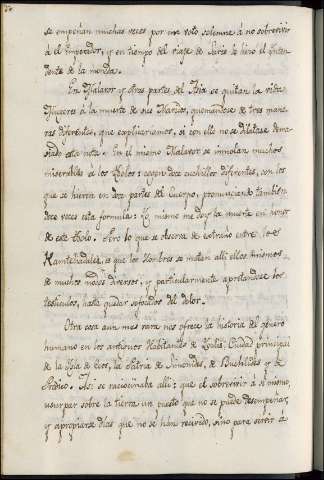 se empeñan muchas veces por un voto solemne á no sobrevivir
á el Emperador, y en tiempo del viaje de Juris lo hizo el Inten
dente de la moneda.
En Malavar y otras partes del Asia se quitan la vida
Mugeres á la muerte de sus Maridos, quemandose de tres mane
ras diferentes, que explicariamos, si con ello no se dilatase dema
siado esta nota. En el mismo Malavar se inmolan muchos
miserables á los Ydolos: cogen doce cuchillos diferentes, con los
que se hieren en doce partes del Cuerpo, pronunciando tambien
doce veces esta formula: Yo mismo me doy la muerte en honor
de este Ydolo. Pero lo que se observa de estraño entre los
Kamtchadales, es que los Hombres se matan alli ellos mismos
de muchos modos diversos, y particularmente apretandose los
testiculos, hasta quedar sofocados del dolor.
Otra cosa aun mas rara nos ofrece la historia del género
humano en los antiguos Habitantes de Yulis, Ciudad principal
de la Isla de Ceos, la Patria de Simonides, de Bachilides y de
Prodico. Asi se raciocinaba alli: que el sobrevivir á si mismo,
usurpar sobre la tierra un puesto que no se puede desempeñar,
y apropiarse dias que no se han recivido, sino para servir á